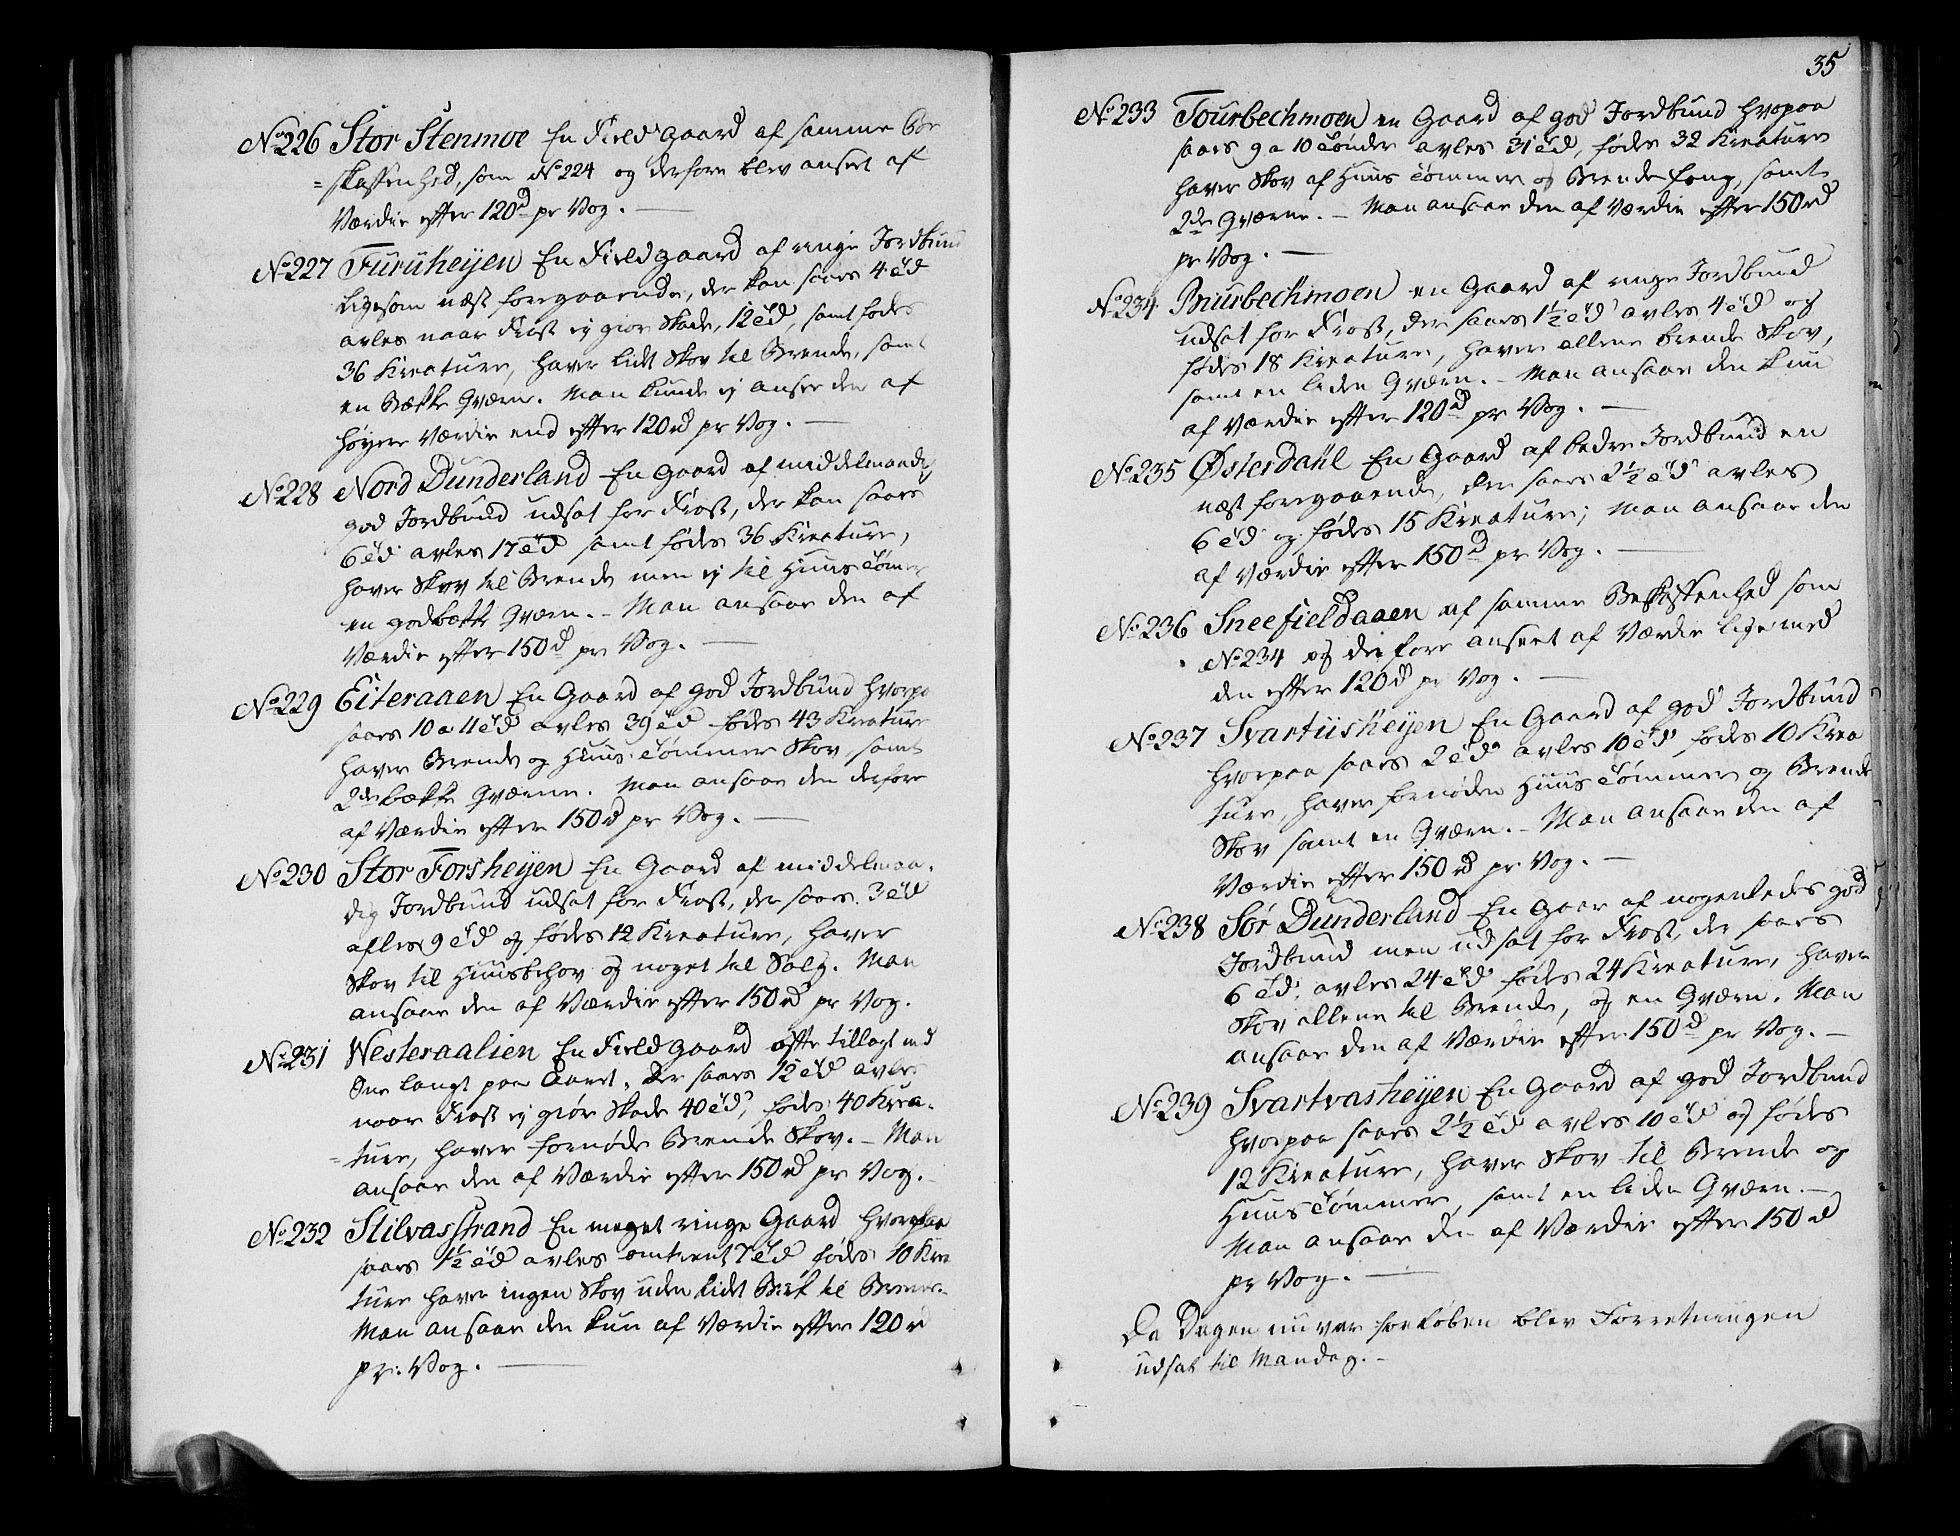 No 226 Stor Stenmoe En Field Gaard af samme Be
=skaffenhed, som No 224 og derfore blev anseet af
Værdie efter 120 rd pr Vog. —
No 227 Furuheijen En Field gaard af ringe Jordbund
ligesom næst foregaaende, der kan saaes 4 Td
avles naar Frost ej giør Skade, 12 Td, samt födes
36 Kreature, haver lidt Skov til Brende, samt
en Bække Qværn. Man kunde ej ansee den af
höyere Værdie end efter 120 rd pr Vog. —
No 228 Nord Dunderland En Gaard af middelmaadig
god Jordbund udsat for Frost, der kan saaes
6 Td avles 17 Td samt födes 36 Kreature,
haver Skov til Brende men ej til Huus Tömer
en god bække Qværn. – Man ansaae den af
Værdie efter 150 rd pr Vog. —
No 229 Eiteraaen En Gaard af god Jordbund hvorpaa
saaes 10 a 11 Td avles 39 Td födes 43 Kreature
haver Brende og Huus Tömmer Skov, samt
2de bække Qværne. Man ansaae den derfore
af Værdie efter 150 rd pr Vog. —
No 230 Stor Forsheijen En Gaard af middelmaa-
dig Jordbund udsat for Frost, der saaes 3 Td
afles 9 Td og födes 12 Kreature, haver
Skov til Huusbehov og noget til Salg. Man
ansaae den af Værdie efter 150 rd pr Vog.
No 231 Westeraalien En Field gaard ofte tillagt med
Snee langt paa Aaret. Der saaes 12 Td avles
naar Frost ej giör Skade 40 Td, födes 40 Krea-
=ture, haver fornöden Brende Skov. – Man
ansaae den af Værdie efter 150 rd pr Vog.
No 232 Stilvasstrand En meget ringe Gaard hvorpaa
saaes 1½ Td avles omtrent 7 Td födes 10 Krea
ture haver ingen Skov uden lidt Birk til Brende.
Man ansaae den kun af Værdie efter 120 rd
pr: Vog. —
35
No 233 Tourbechmoen en Gaard af god Jordbund hvorpaa
saaes 9 a 10 Tönder avles 31 Td, födes 32 Kreature
haver Skov af Huus Tömmer og Brende fang, samt
2de Qværne. – Man ansaae den af Værdie efter 150 rd
pr Vog. —
No 234 Bnurbechmoen en Gaard af ringe Jordbund
udsat for Frost, der saaes 1½ Td avles 4 Td og
födes 18 Kreature, haver allene brende Skov,
samt en liden Qværn. – Man ansaae den kun
af Værdie efter 120 rd pr Vog. —
No 235 Østerdahl En Gaard af bedre Jordbund en
næst foregaaende, der saaes 2½ Td avles
6 Td og födes 15 Kreature; Man ansaae den
af Værdie efter 150 rd pr Vog. —
No 236 Sneefieldaaen af samme Beskaffenhed som
No 234 og derfore anseet af Værdie lige med
den efter 120 rd pr Vog. —
No 237 Svartiisheijen En Gaard af god Jordbund
hvorpaa saaes 2 Td avles 10 Td födes 10 Krea
ture, haver fornöden Huus Tömmer og Brende
Skov samt en Qværn. – Man ansaae den af
Værdie efter 150 rd pr Vog. —
No 238 Sör Dunderland En Gaar af nogenledes god
Jordbund men udsat for Frost, der saaes
6 Td, avles 24 Td födes 24 Kreature, haver
Skov allene til Brende, og en Qværn. Man
ansaae den af Værdie efter 150 rd pr Vog. –
No 239 Svartvasheijen En Gaard af god Jordbund
hvorpaa saaes 2½ Td avles 10 Td og födes
12 Kreature, haver Skov til Brende og
Huus Tömmer, samt en liden Qværn. –
Man ansaae den af Værdie efter 150 rd
pr Vog. —
Da Dagen nu var forloben blev Forretningen
udsat til Mandag. –